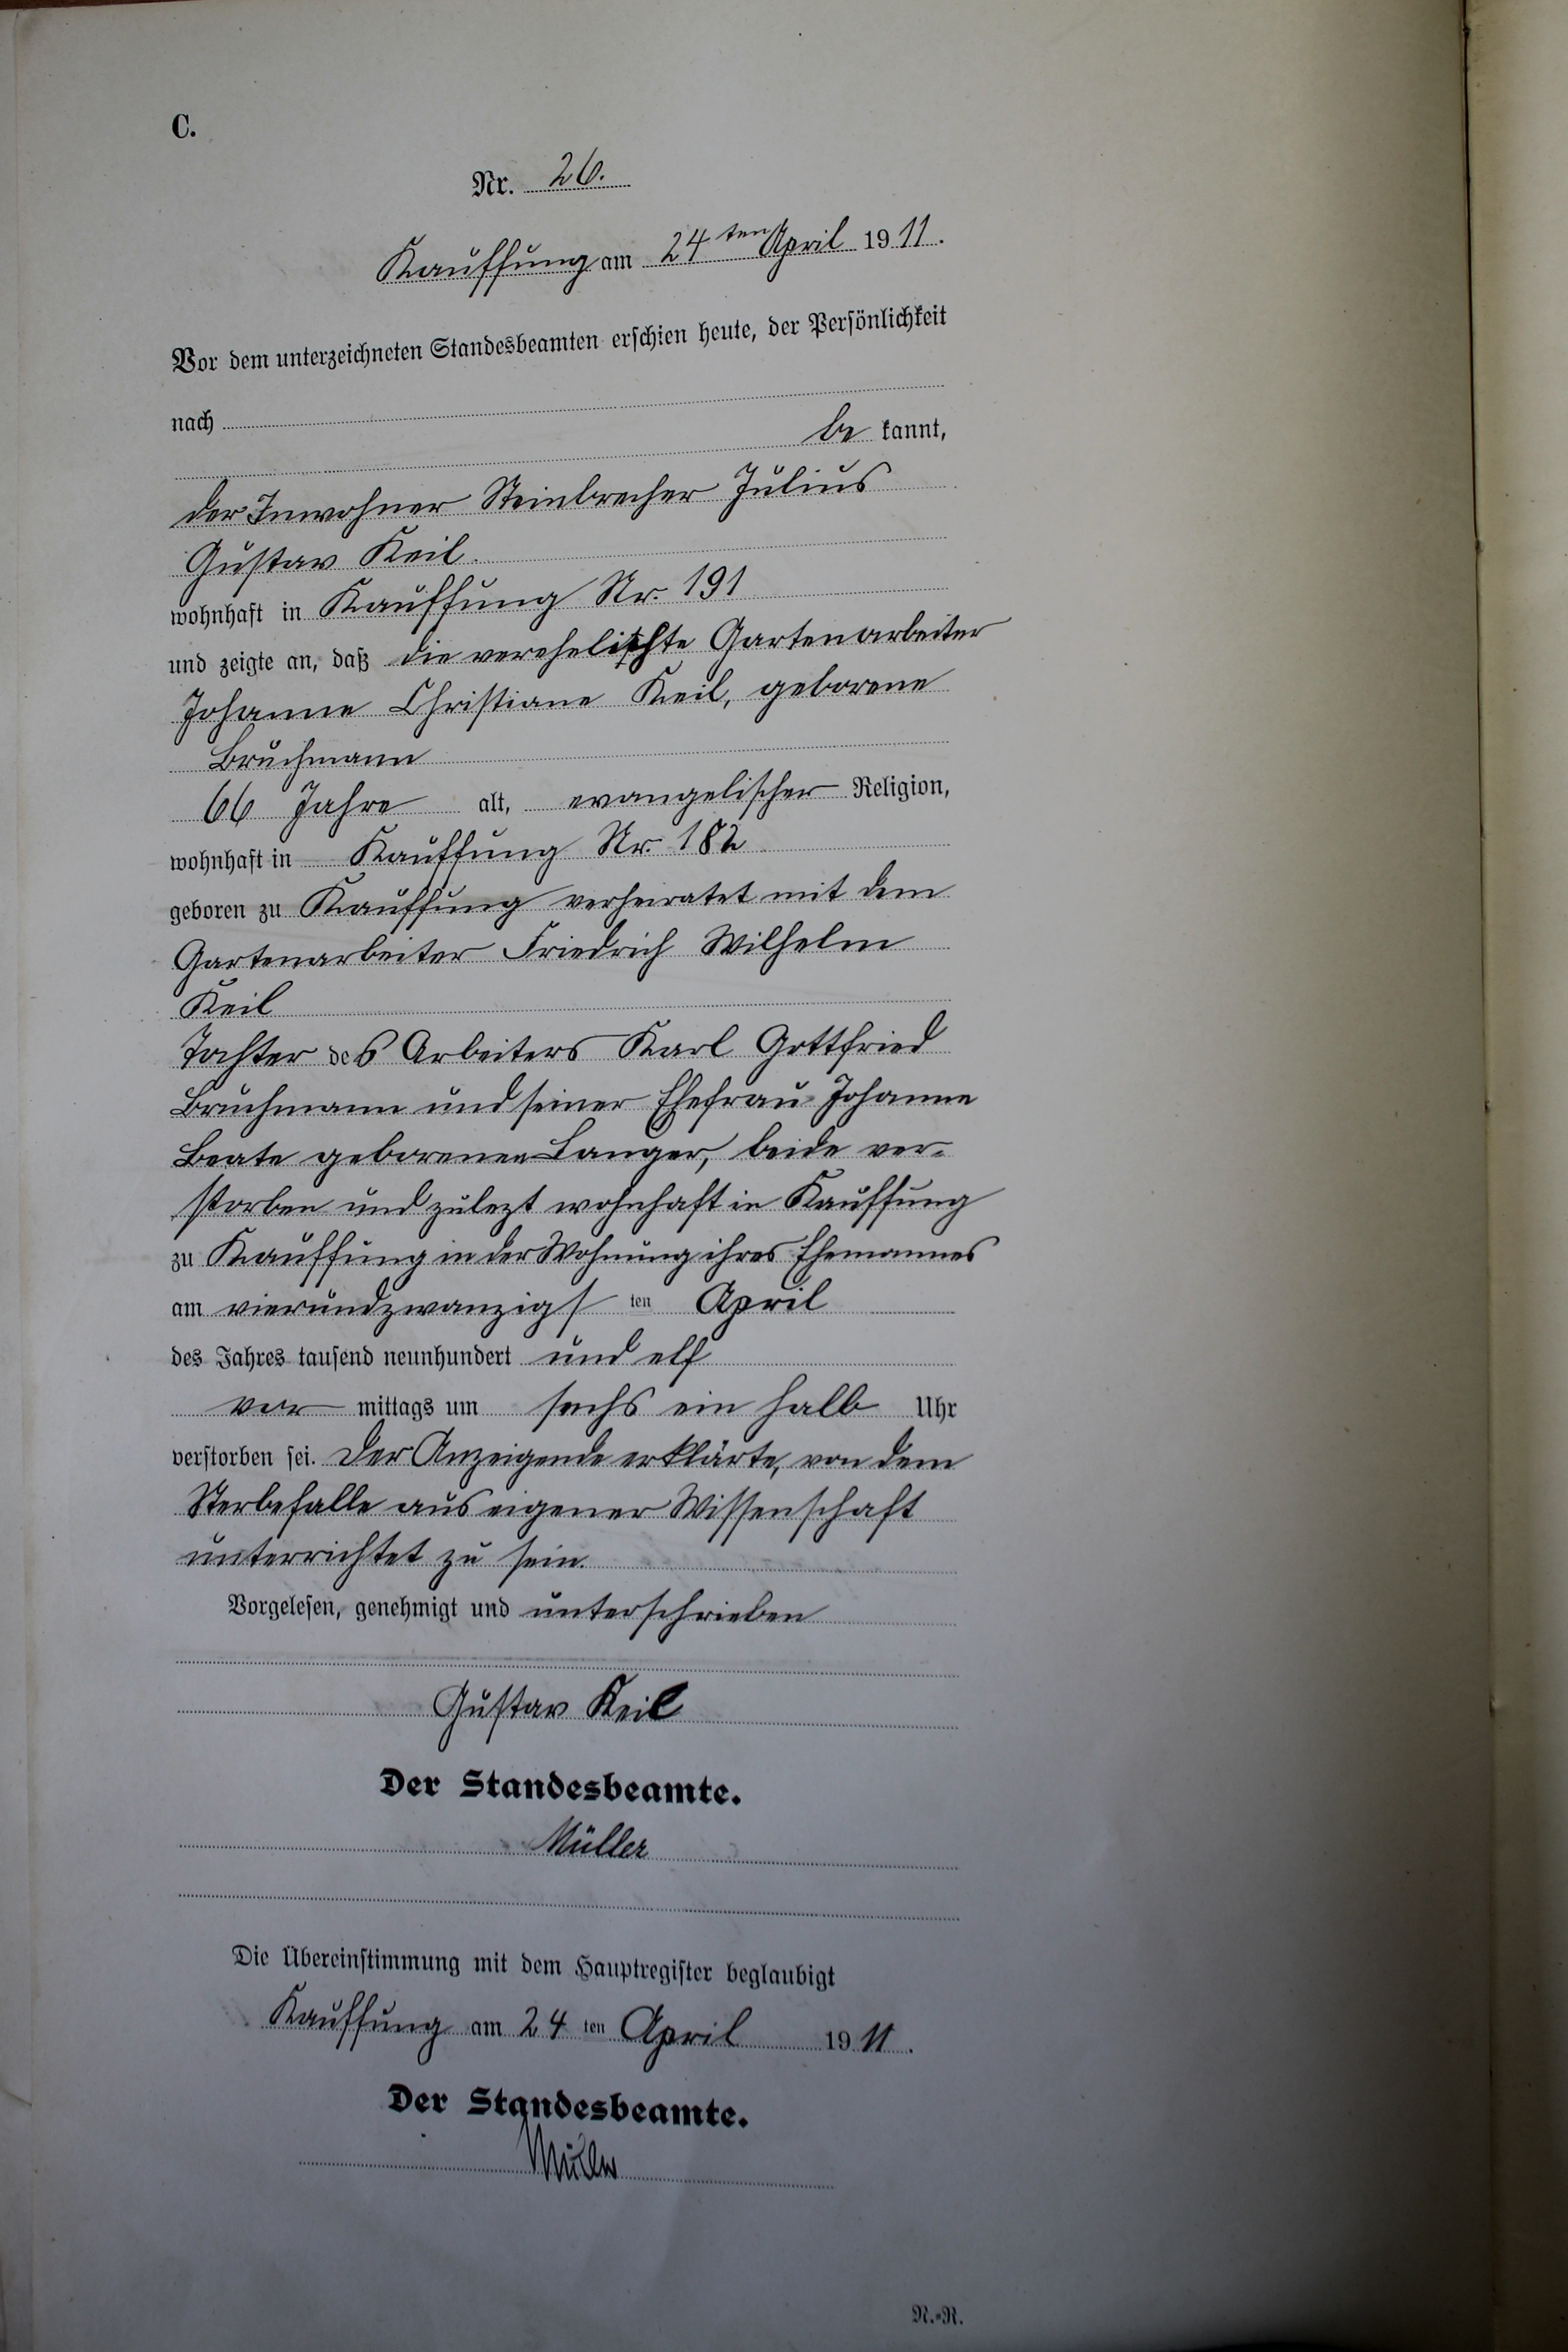 C.
Nr. 26.
Kauffung am 24ten April 1911.
Vor dem unterzeichneten Standesbeamten erschien heute, der Persönlichkeit
nach
be kannt,
der Inwohner Steinbrecher Julius
Gustav Keil.
wohnhaft in Kauffung Nr. 191
und zeigte an, daß die verehelichte Gartenarbeiter
Johanne Christiane Keil, geborene
Bruchmann
66 Jahre alt, evangelischer Religion,
wohnhaft in Kauffung Nr. 182
geboren zu Kauffung verheiratet mit dem
Gartenarbeiter Friedrich Wilhelm
Keil
Tochter des Arbeiters Karl Gottfried
Bruchmann und seiner Ehefrau Johanne
Beate geborenen Langer, beide ver-
storben und zulezt wohnhaft in Kauffung
zu Kauffung in der Wohnung ihres Ehemannes
am vierundzwanzigsten April
des Jahres tausend neunhundert und elf
vor mittags um sechs ein halb Uhr
verstorben sei. Der Anzeigende erklärte, von dem
Sterbefalle aus eigener Wissenschaft
unterrichtet zu sein.
Vorgelesen, genehmigt und unterschrieben
Gustav Keil
Der Standesbeamte.
Müller
Die Übereinstimmung mit dem Hauptregister beglaubigt
Kauffung am 24ten April 1911.
Der Standesbeamte.
Müller
N.-R.